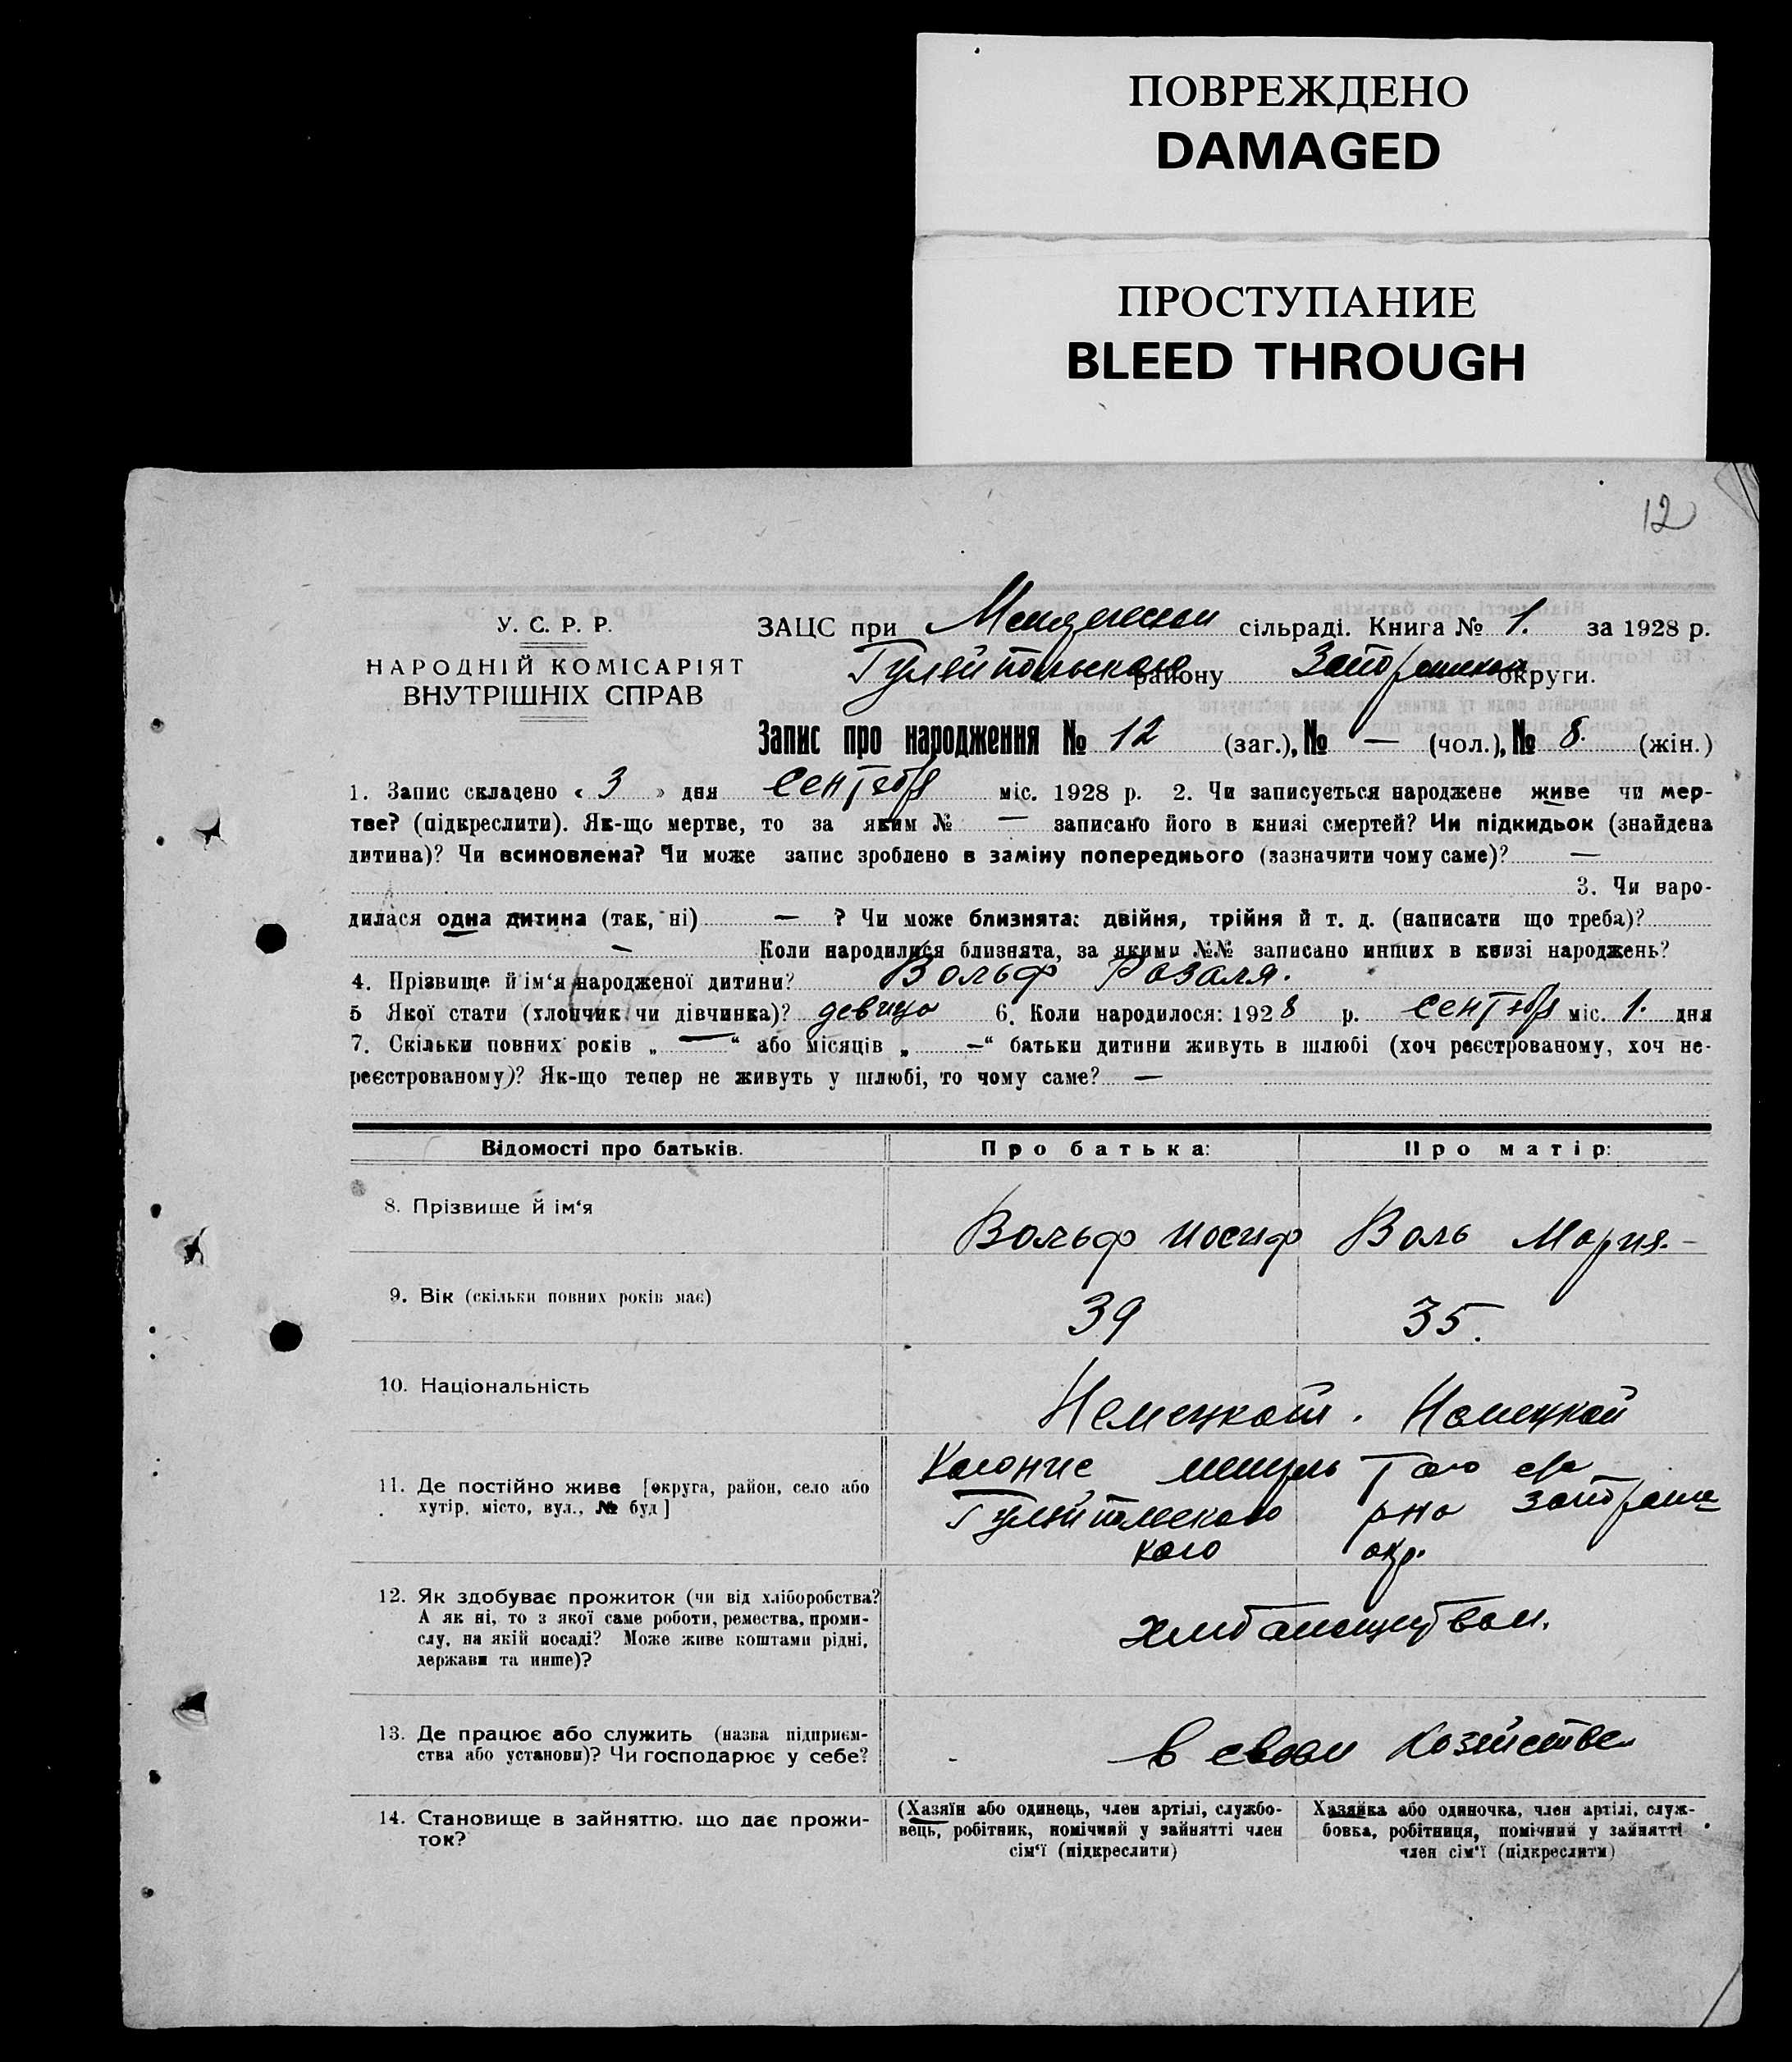 ПОВРЕЖДЕНО
DAMAGED
ПРОСТУПАНИЕ
BLEED THROUGH
12
У. С. Р. Р.
НАРОДНІЙ КОМІСАРІЯТ
ВНУТРІШНІХ СПРАВ
ЗАЦС при сільраді. Книга № 1. за 1928 р.
Гуляйпольского району округи.
Запис про народження № 12 (заг.), № — (чол.), № 8. (жін.)
1. Запис складено « 3 » дня Сентебр міс. 1928 р. 2. Чи записується народжене живе чи мер-
тве? (підкреслити). Як-що мертве, то за яким № — записано його в книзі смертей? Чи підкидьок (знайдена
дитина)? Чи всиновлена? Чи може запис зроблено в заміну попереднього (зазначити чому саме)? —
3. Чи наро-
дилася одна дитина (так, ні) — ? Чи може близнята: двійня, трійня й т. д. (написати що треба)?
— Коли народилися близнята, за якими №№ записано инших в книзі народжень?
4. Прізвище й ім‘я народженої дитини? Вольф Розаля.
5 Якої стати (хлопчик чи дівчинка)? девицо 6. Коли народилося: 1928 р. Сентебр міс. 1. дня
7. Скільки повних років „ — “ або місяців „ — “ батьки дитини живуть в шлюбі (хоч реєстрованому, хоч не-
реєстрованому)? Як-що тепер не живуть у шлюбі, то чому саме? —
Відомості про батьків. Про батька: Про матір:
8. Прізвище й ім‘я Вольф Иосиф Воль Мария. -
9. Вік (скільки повних років має) 39 35.
10. Національність Немецкой. Немецкой
11. Де постійно живе [округа, район, село або
хутір, місто, вул., № буд]
Колоние Того
Гуляйполеского рна Запорож
кого окр.
12. Як здобуває прожиток (чи від хліборобства?
А як ні, то з якої саме роботи, ремества, проми-
слу, на якій посаді? Може живе коштами рідні,
держави та инше)?
13. Де працює або служить (назва підприєм-
ства або установи)? Чи господарює у себе?
- в своем Хозяйстве
14. Становище в зайняттю, що дає прожи-
ток?
(Хазяїн або одинець, член артілі, службо-
вець, робітник, помічний у зайнятті член
сім‘ї (підкреслити)
Хазяйка або одиночка, член артілі, служ-
бовка, робітниця, помічний у зайнятті
член сім‘ї (підкреслити)